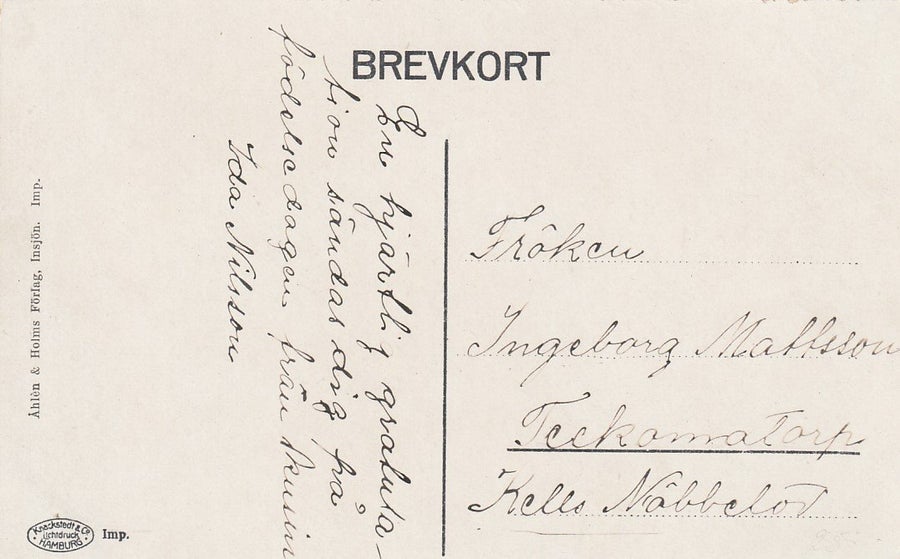 BREVKORT
En hjärtlig gratula-
tion sändas dig på
födelsedagen från kusin
Ida Nilsson
Fröken
Ingeborg Mattsson
Teckomatorp
Kells Nöbbelöv
Åhlén & Holms Förlag, Insjön. Imp.
Knackstedt & Co
Lichtdruck
HAMBURG
Imp.